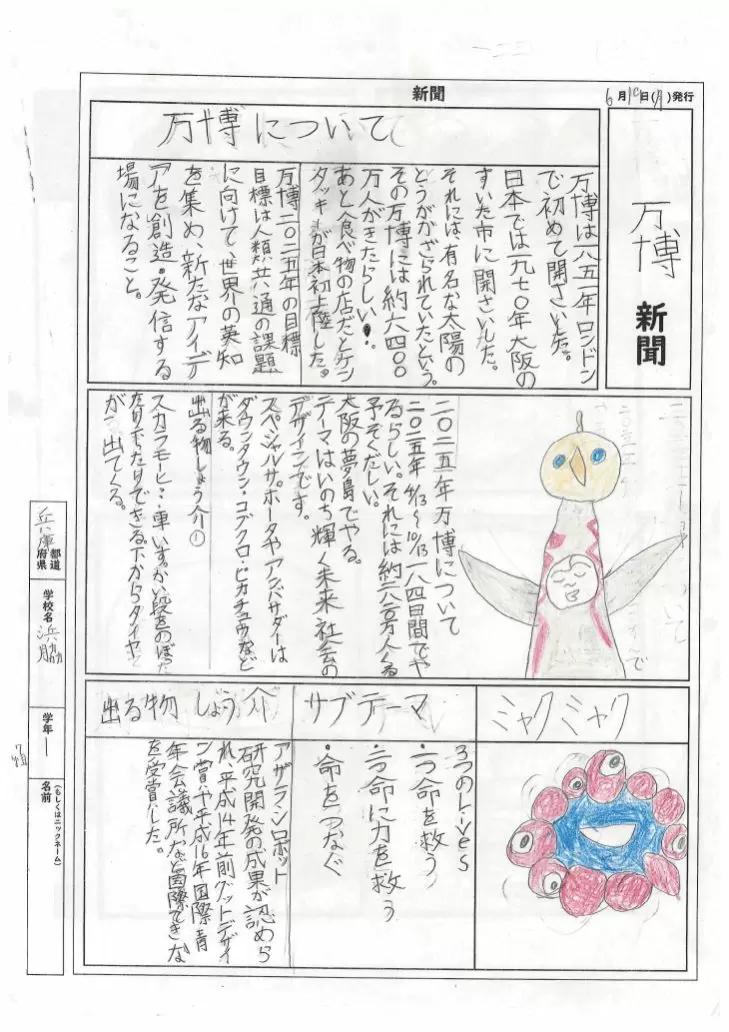 新聞
6月10日(月)発行
万博 新聞
万博について
万博は一八五一年ロンドン
で初めて開さいした。
日本では一九七〇年大阪の
すいた市に開さいした。
それには、有名な太陽の
とうがかざられていたという。
その万博には約六四〇〇
万人がきたらしい!
あと食べ物の店だとケン
タッキーが日本初上陸した。
万博二〇二五年の目標
目標は人類共通の課題
に向けて、世界の英知
を集め、新たなアイデ
アを創造・発信する
場になること。
二〇二五年万博について
二〇二五年4/13〜10/13一八四日間でや
るらしい。それには約二八二〇万人くる
予そくだしい。
大阪の夢島でやる。
テーマはいのち輝く未来社会の
デザインです。
スペシャルサポータやアンバサダーは
ダウンタウン・コブクロ・ピカチュウなど
が来る。
出る物しょう介①
スカラモービ:車いす。かい段をのぼった
りおたりできる下からタイヤ
が出てくる。
ミャクミャク
サブテーマ
3つのLives
・命を救う
・命に力を救う
・命をつなぐ
出る物しょう介
アザラシロボット
研究開発の成果が認めら
れ、平成14年前グットデザイ
ン賞や平成16年国際青
年会議所など国際てきな
を受賞した。
兵庫 都道府県
学校名 浜脇
学年
名前
(もしくはニックネーム)